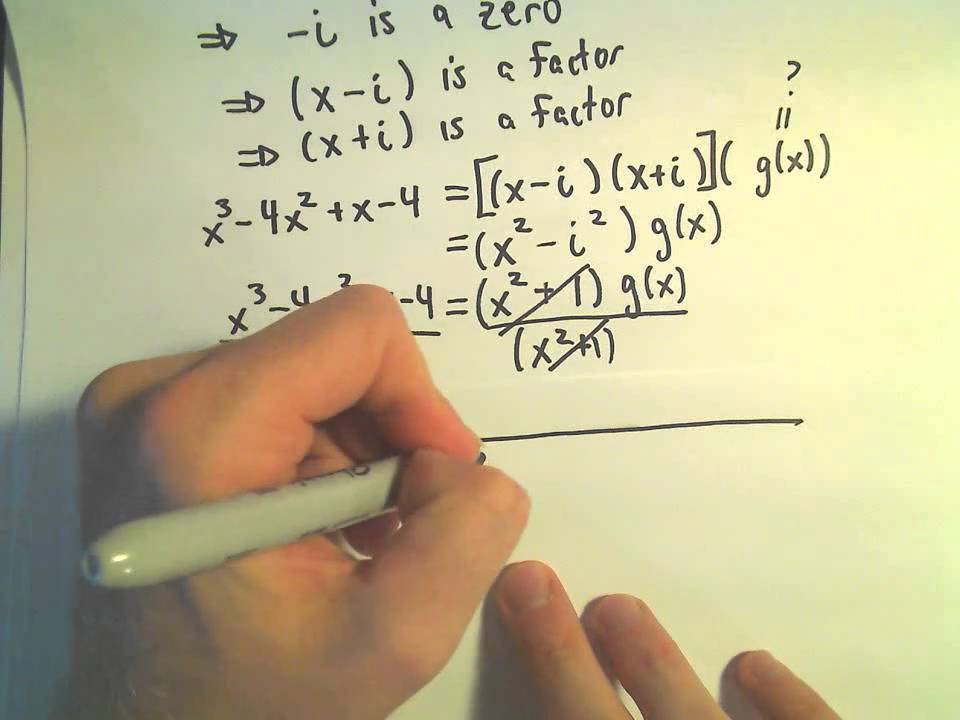 ⇒ -i is a zero
⇒ (x-i) is a factor
⇒ (x+i) is a factor
?
=
x³-4x²+x-4 = [(x-i)(x+i)](g(x))
= (x²-i²) g(x)
x³-4 ² -4 = (x²+1) g(x)
(x²+1)